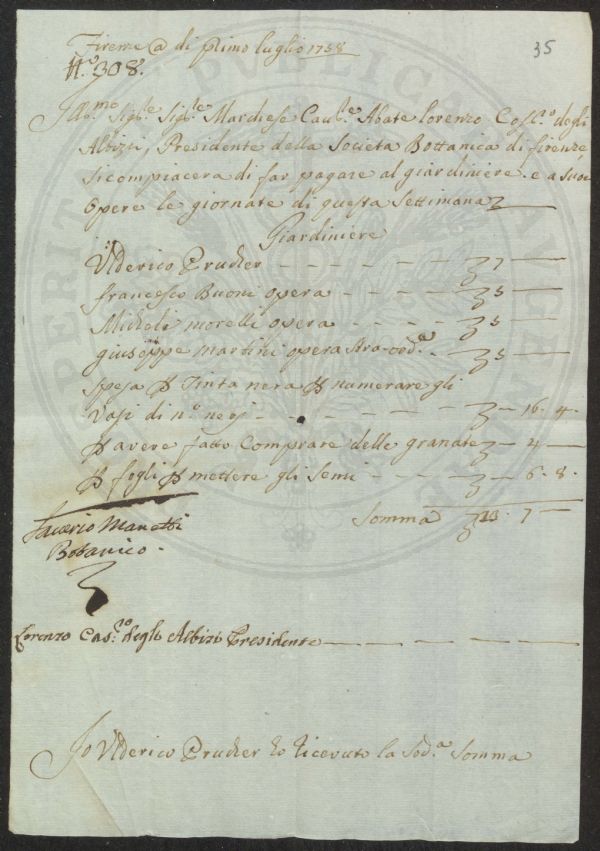 Firenze @ di primo luglio 1758
35
N.o 308.
Ill.mo Sig.le Sig.le Marchese Cav.le Abate Lorenzo Cos.mo degli
Albizzi, Presidente della Societa Bottanica di firenze
Si compiacera di far pagare al giardiniere e a suoi
Opere le giornate di questa Settimana
Giardiniere
Vlderico Prucker - - - - - - 7 —
francesco Buoni opera - - - - 5 —
Micheli morelli opera - - - - 5 —
giuseppe martini opera stra=ord.a - 5 —
Spesa p Tinta nera p numerare gli
Vasi di n.o - - - - - - - — 16. 4.
p avere fatto Comprare delle granate — 4 —
p fogli p mettere gli Semi - - - — 6. 8.
Somma 23. 7 —
Saverio Manetti
Bottanico.
Lorenzo Cas.o degli Albizi Presidente
Io Vlderico Prucker ho Ricevuto la Sod.a Somma
PERITURA
REIPUBLICAE